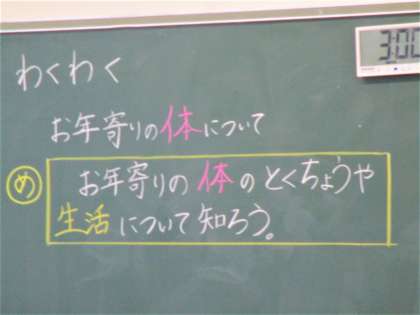 わくわく
3:00
お年寄りの体について
め
お年寄りの体のとくちょうや
生活について知ろう。